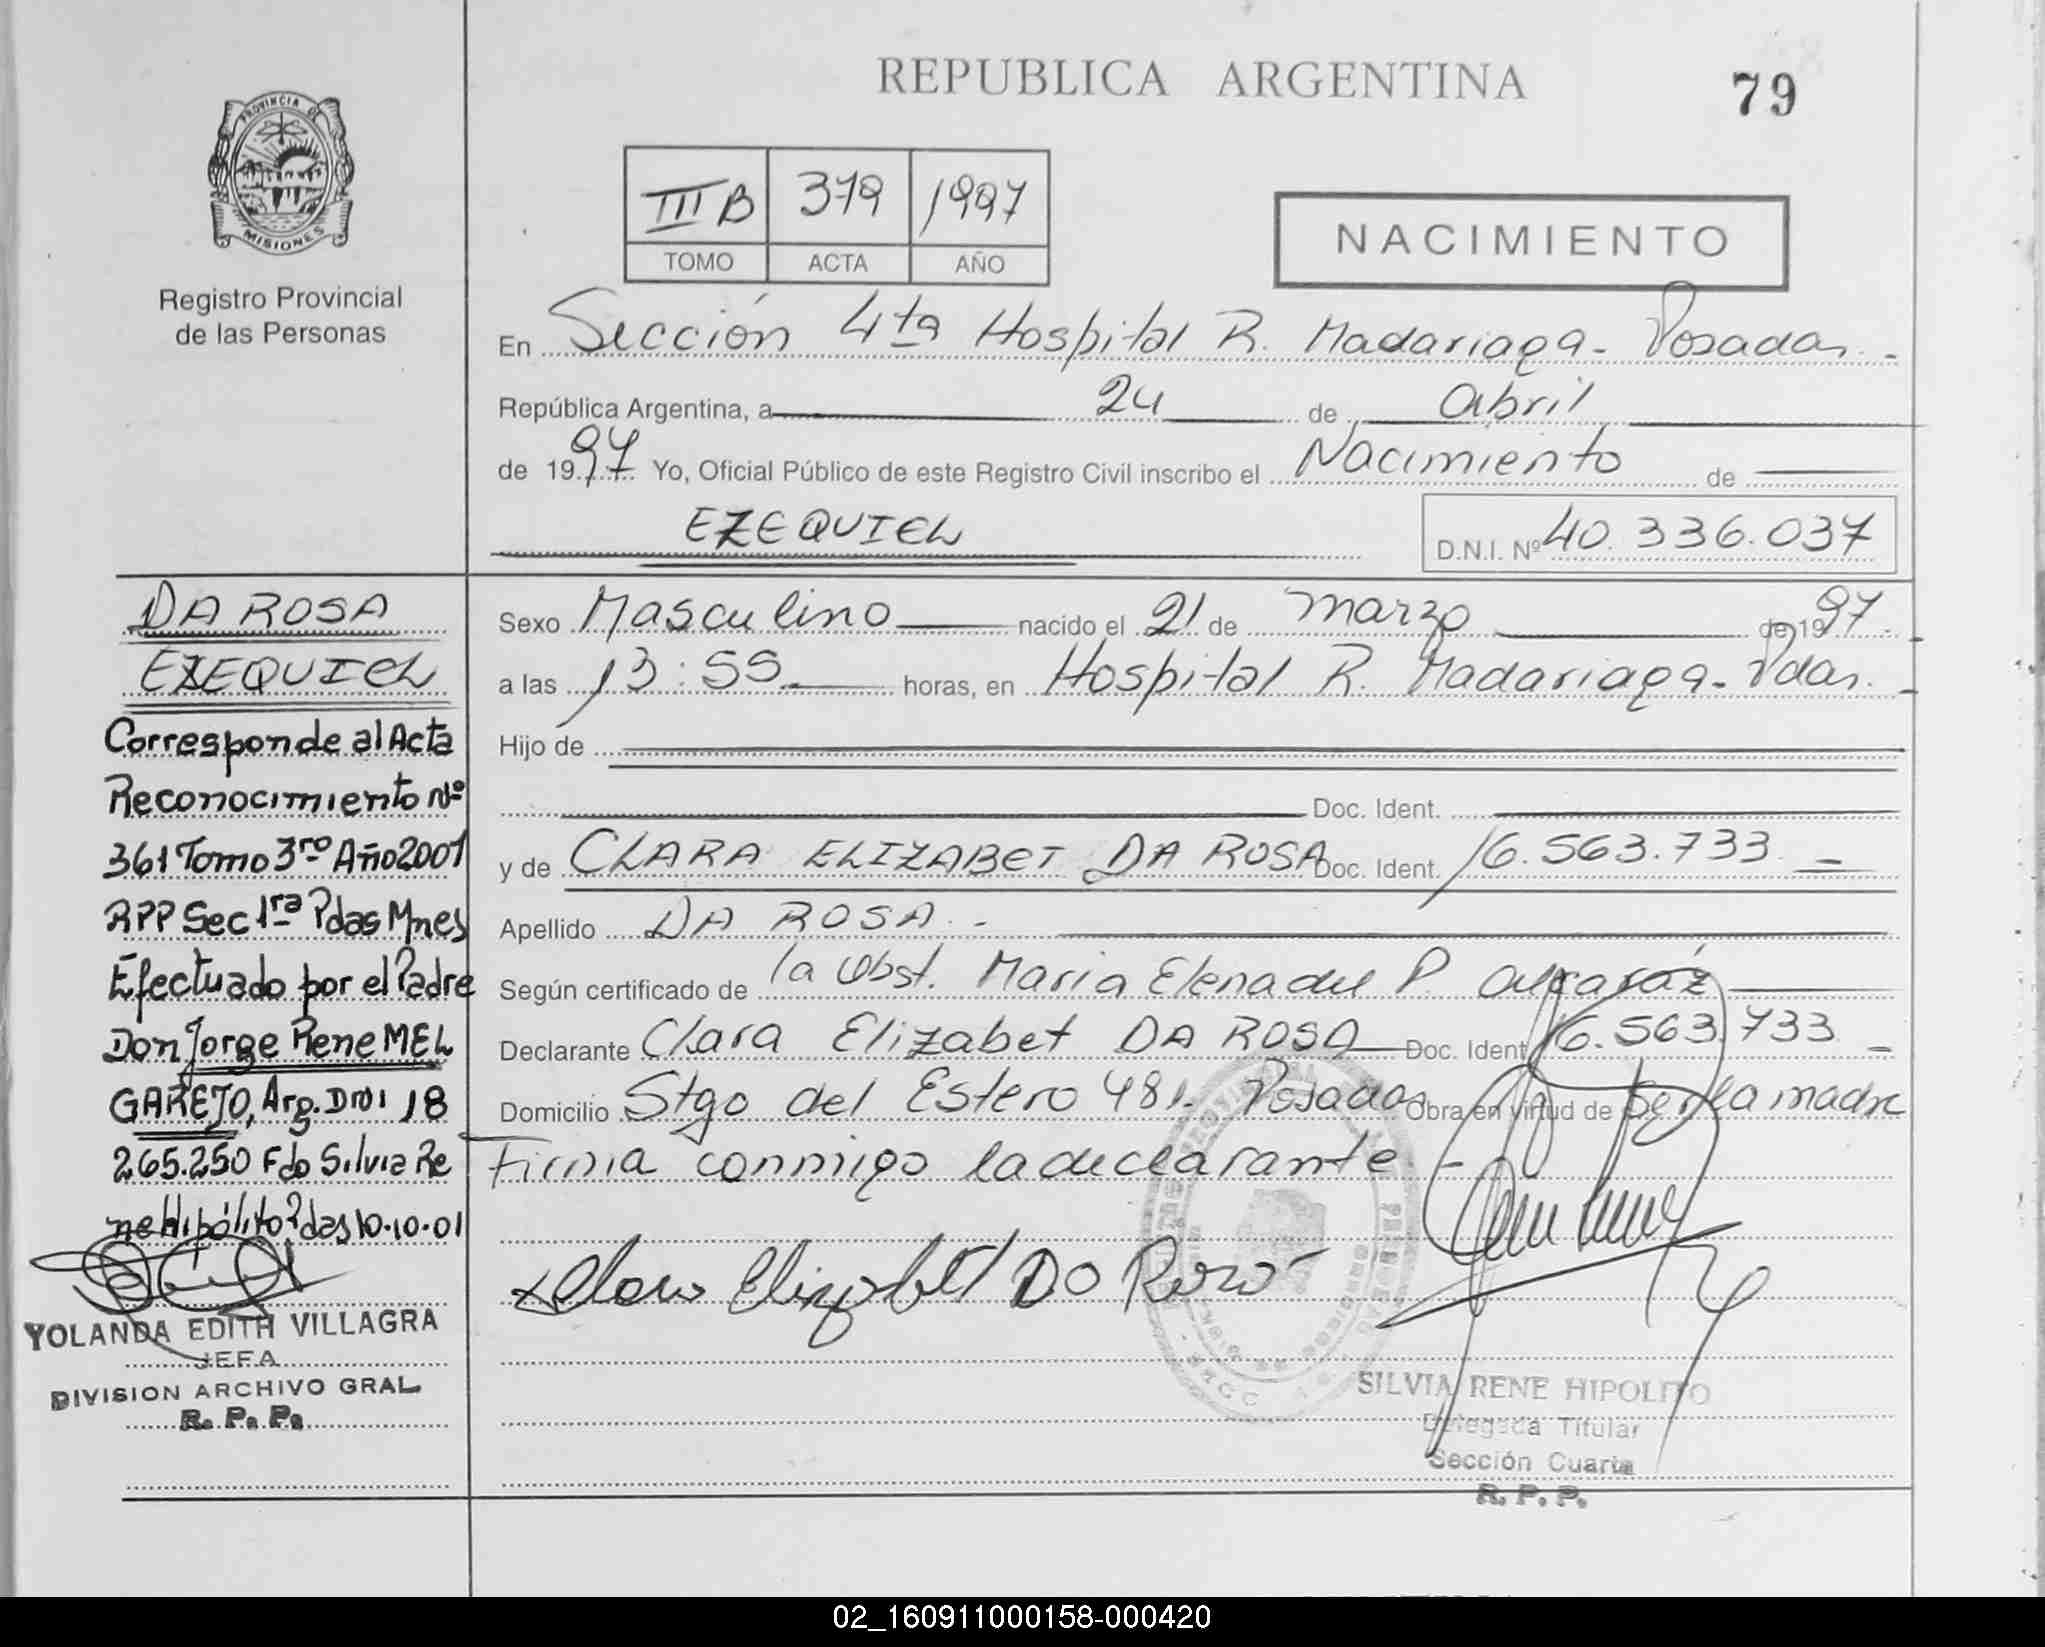 REPUBLICA ARGENTINA
79
PROVINCIA DE
MISIONES
Registro Provincial
de las Personas
III B 379 1997
TOMO ACTA AÑO
NACIMIENTO
En Sección 4ta Hospital R. Madariaga - Posadas. -
República Argentina, a 24 de Abril
de 1997 Yo, Oficial Público de este Registro Civil inscribo el Nacimiento de
EZEQUIEL
D.N.I. Nº 40.336.037
Sexo Masculino nacido el 21 de marzo de 1997. -
a las 13:55 horas, en Hospital R. Madariaga - Pdas. -
Hijo de
Doc. Ident.
y de CLARA ELIZABET DA ROSA Doc. Ident. 16.563.733 -
Apellido DA ROSA. -
Según certificado de la Obst. Maria Elena del P. Alcaráz
Declarante Clara Elizabet DA ROSA Doc. Ident 16.563.733 -
Domicilio Stgo del Estero 481. Posadas Obra en virtud de Ser la madre
Firma conmigo la declarante. -
Clara Elizabet Da Rosa
SILVIA RENE HIPOLITO
Delegada Titular
Sección Cuarta
R. P. P.
DA ROSA
EZEQUIEL
Corresponde al Acta
Reconocimiento Nº
361 Tomo 3ro Año 2001
RPP Sec 1ra Pdas Mnes
Efectuado por el Padre
Don Jorge Rene MEL
GAREJO, Arg. DNI 18
265.250 Fdo Silvia Re
ne Hipólito Pdas 10.10.01
YOLANDA EDITH VILLAGRA
JEFA
DIVISION ARCHIVO GRAL.
R. P. P.
02_160911000158-000420